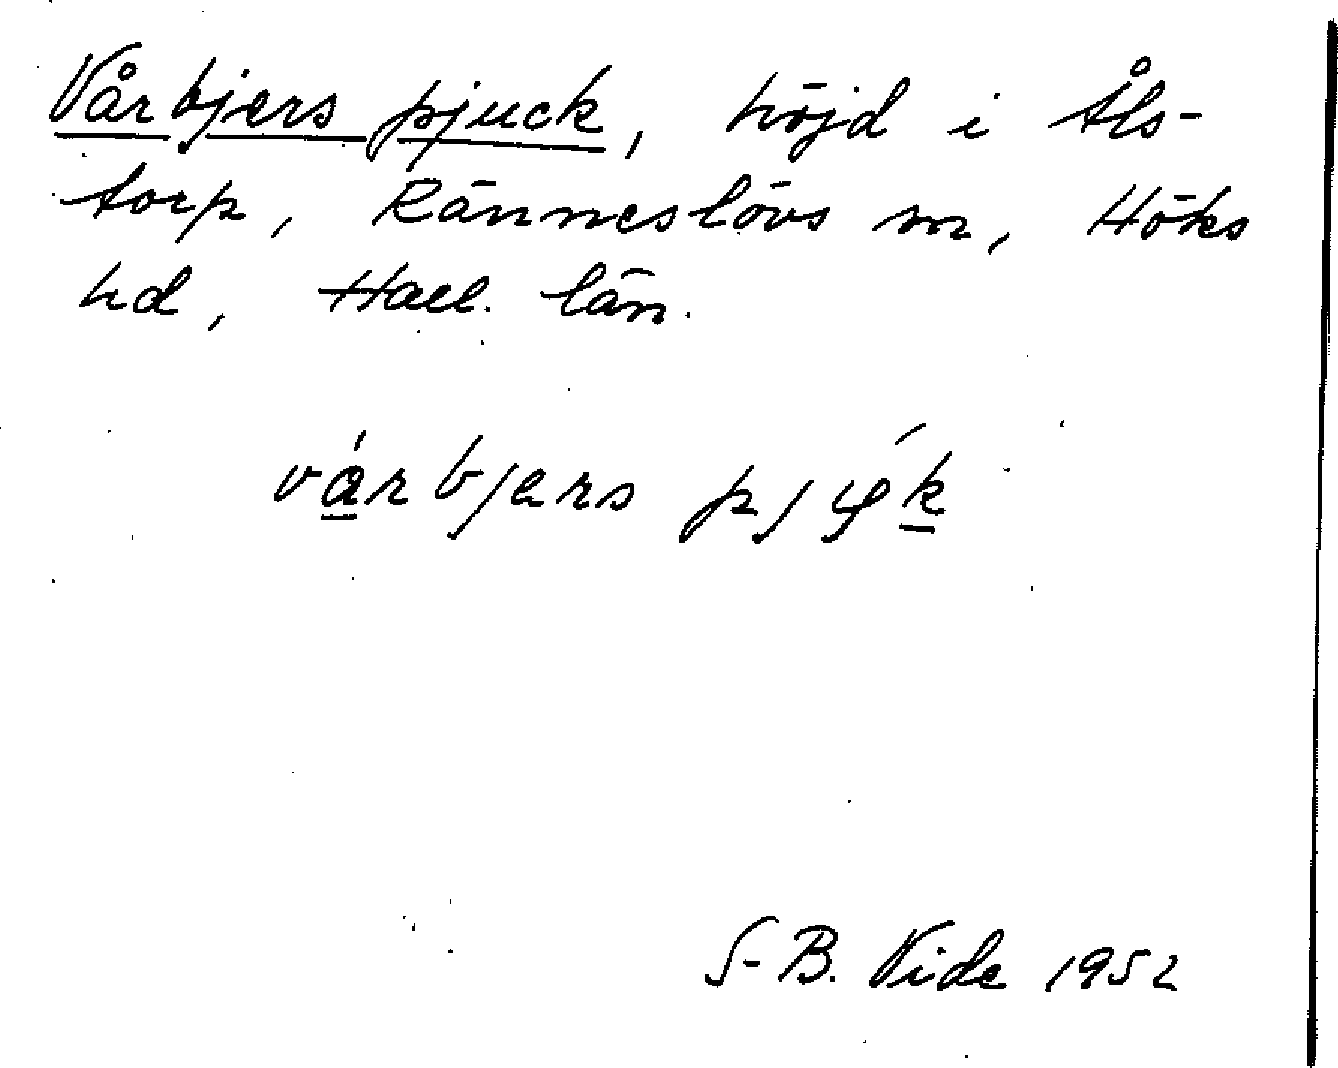 Vårbjers pjuck, höjd i Åls-
torp, Ränneslövs sn, Höks
hd, Hall. län.
várbjers pjψ́k
S-B. Vide 1952